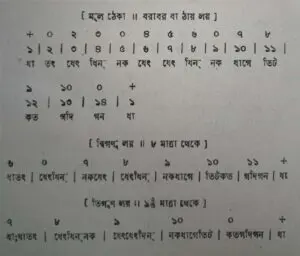 [ মূল ঠেকা ॥ বরাবর বা ঠায় লয় ]
+ ০ ২ ০ ৩ ০ ৪ ৫ ৬ ০ ৭ ৮
১ | ২ | ৩ | ৪ | ৫ | ৬ | ৭ | ৮ | ৯ | ১০ | ১১ |
ধা তৎ ধেৎ ধিন্ নক ধেৎ ধেৎ ধিন্ নক ধাগে তিট
৯ ১০ ০ +
১২ | ১৩ | ১৪ | ১
কত গদি গন ধা
[ দ্বিগুণ লয় ॥ ৮ মাত্রা থেকে ]
৬ ০ ৭ ৮ ৯ ১০ ১১ +
ধাতৎ | ধেৎধিন্ | নকধেৎ | ধেৎধিন্ | নকধাগে | তিটকত | গদিগন | ধা
[ তিগুণ লয় ॥ মাত্রা থেকে ]
৭ ৮ ৯ ১০ ০ +
ধাঃধাতৎ | ধেৎধিন্নক | ধেৎধেৎধিন্ | নকধাগেতিট | কতগদিগন | ধা